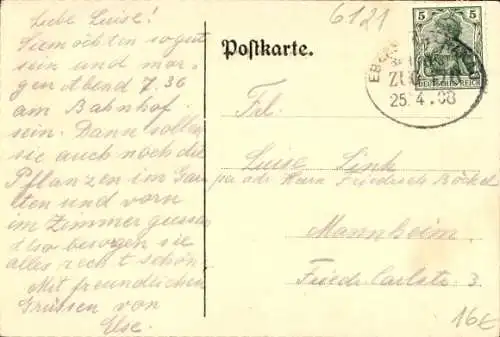 Liebe Luise!
Sie möchten so gut
sein und mor-
gen Abend 7.36
am Bahnhof
sein. Dann sollen
sie auch noch die
Pflanzen im Gar-
ten und vorn
im Zimmer giessen
Also besorgen sie
alles recht schön.
Mit freundlichen
Grüssen von
Else.
6121
Postkarte.
5 5
DEUTSCHES REICH
ZUG
25.4.08
Frl.
Luise Link
per adr. Herrn Friedrich Böckel
Mannheim.
Friedr. Carlstr. 3.
16€